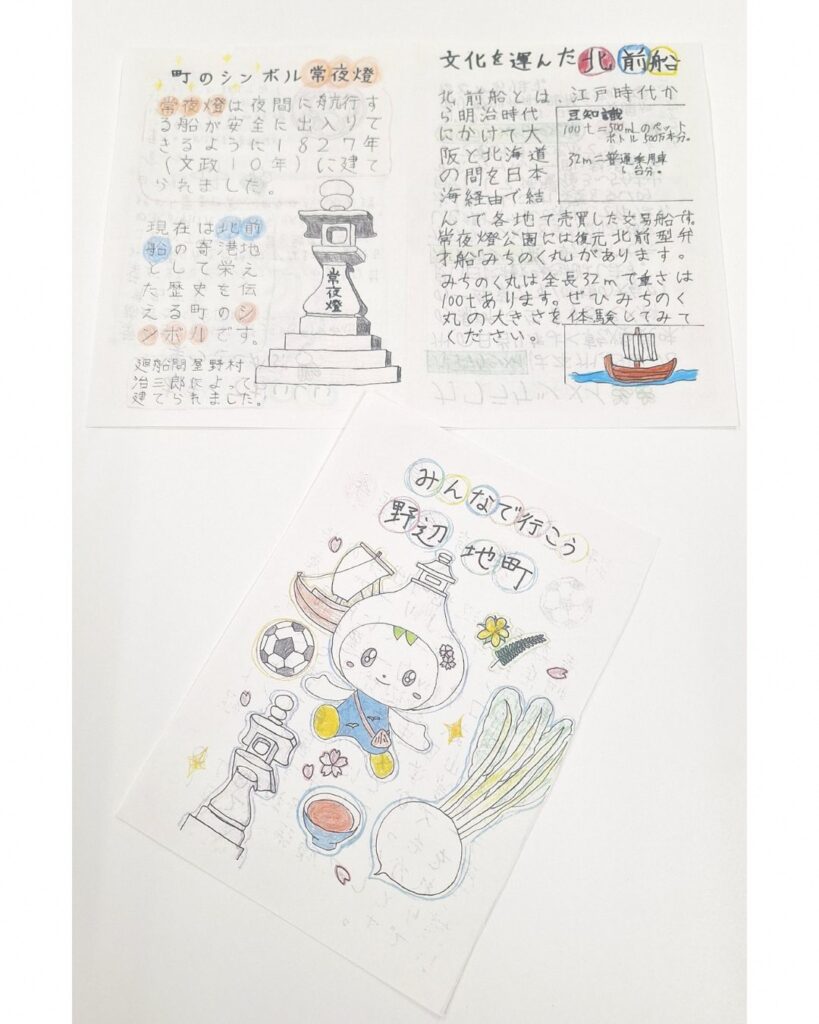 町のシンボル常夜燈
常夜燈は夜間に航行す
る船が安全に出入りで
きるように1827年
(文政10年)に建て
られました。
現在は北前
船の寄港地
として栄え
た歴史を伝
える町のシ
ンボルです。
廻船問屋野村
治三郎によって
建てられました。
常夜燈
文化を運んだ北前船
北前船とは、江戸時代か
ら明治時代
にかけて大
阪と北海道
の間を日本
海経由で結
んで各地で売買した交易船です。
常夜燈公園には復元北前型弁
才船「みちのく丸」があります。
みちのく丸は全長32mで重さは
100tあります。ぜひみちのく
丸の大きさを体験してみて
ください。
豆知識
100t=500mLのペット
ボトル500万本分。
32m=普通乗用車
台分。
みんなで行こう
野辺地町